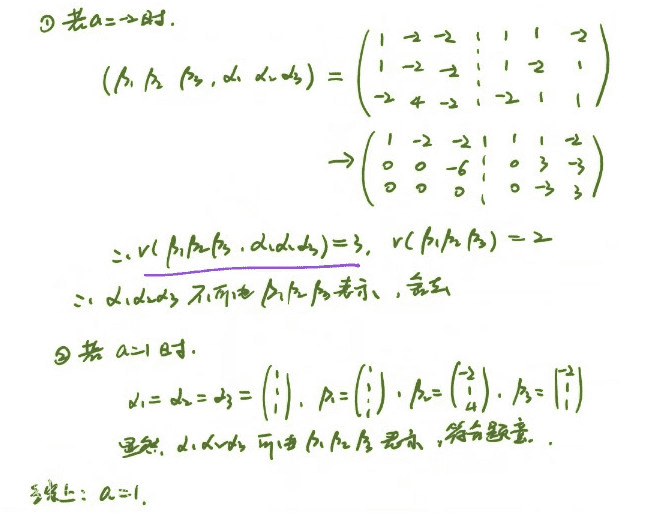 ① 若a=-2时.
(β₁ β₂ β₃, α₁ α₂ α₃) = ( 1 -2 -2 ⋮ 1 1 -2
1 -2 -2 ⋮ 1 -2 1
-2 4 -2 ⋮ -2 1 1 )
→ ( 1 -2 -2 ⋮ 1 1 -2
0 0 -6 ⋮ 0 3 -3
0 0 0 ⋮ 0 -3 3 )
∴ r(β₁β₂β₃, α₁α₂α₃) = 3, r(β₁β₂β₃) = 2
∴ α₁α₂α₃ 不可由 β₁β₂β₃ 表示, 舍去
② 若 a=1时.
α₁ = α₂ = α₃ = (1 1 1), β₁ = (1 1 1), β₂ = (-2 1 4), β₃ = (-2 1 1)
显然, α₁α₂α₃ 可由 β₁β₂β₃ 表示, 符合题意.
综上: a=1.